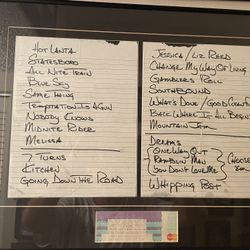 HOT LANTA
STATESBORO
ALL NITE TRAIN
BLUE SKY
SAME THING
TEMPTATION IS A GUN
NOBODY KNOWS
MIDNITE RIDER
MELISSA
7 TURNS
KITCHEN
GOING DOWN THE ROAD
JESSICA / LIZ REED
CHANGE MY WAY OF LIVING
GAMBLERS ROLL
SOUTHBOUND
WHAT'S DONE / GOOD CLEAN
BACK WHERE IT ALL BEGINS
MOUNTAIN JAM
DRUMS
ONE WAY OUT
RAMBLIN' MAN
YOU DON'T LOVE ME
CHOOSE
WHIPPING POST